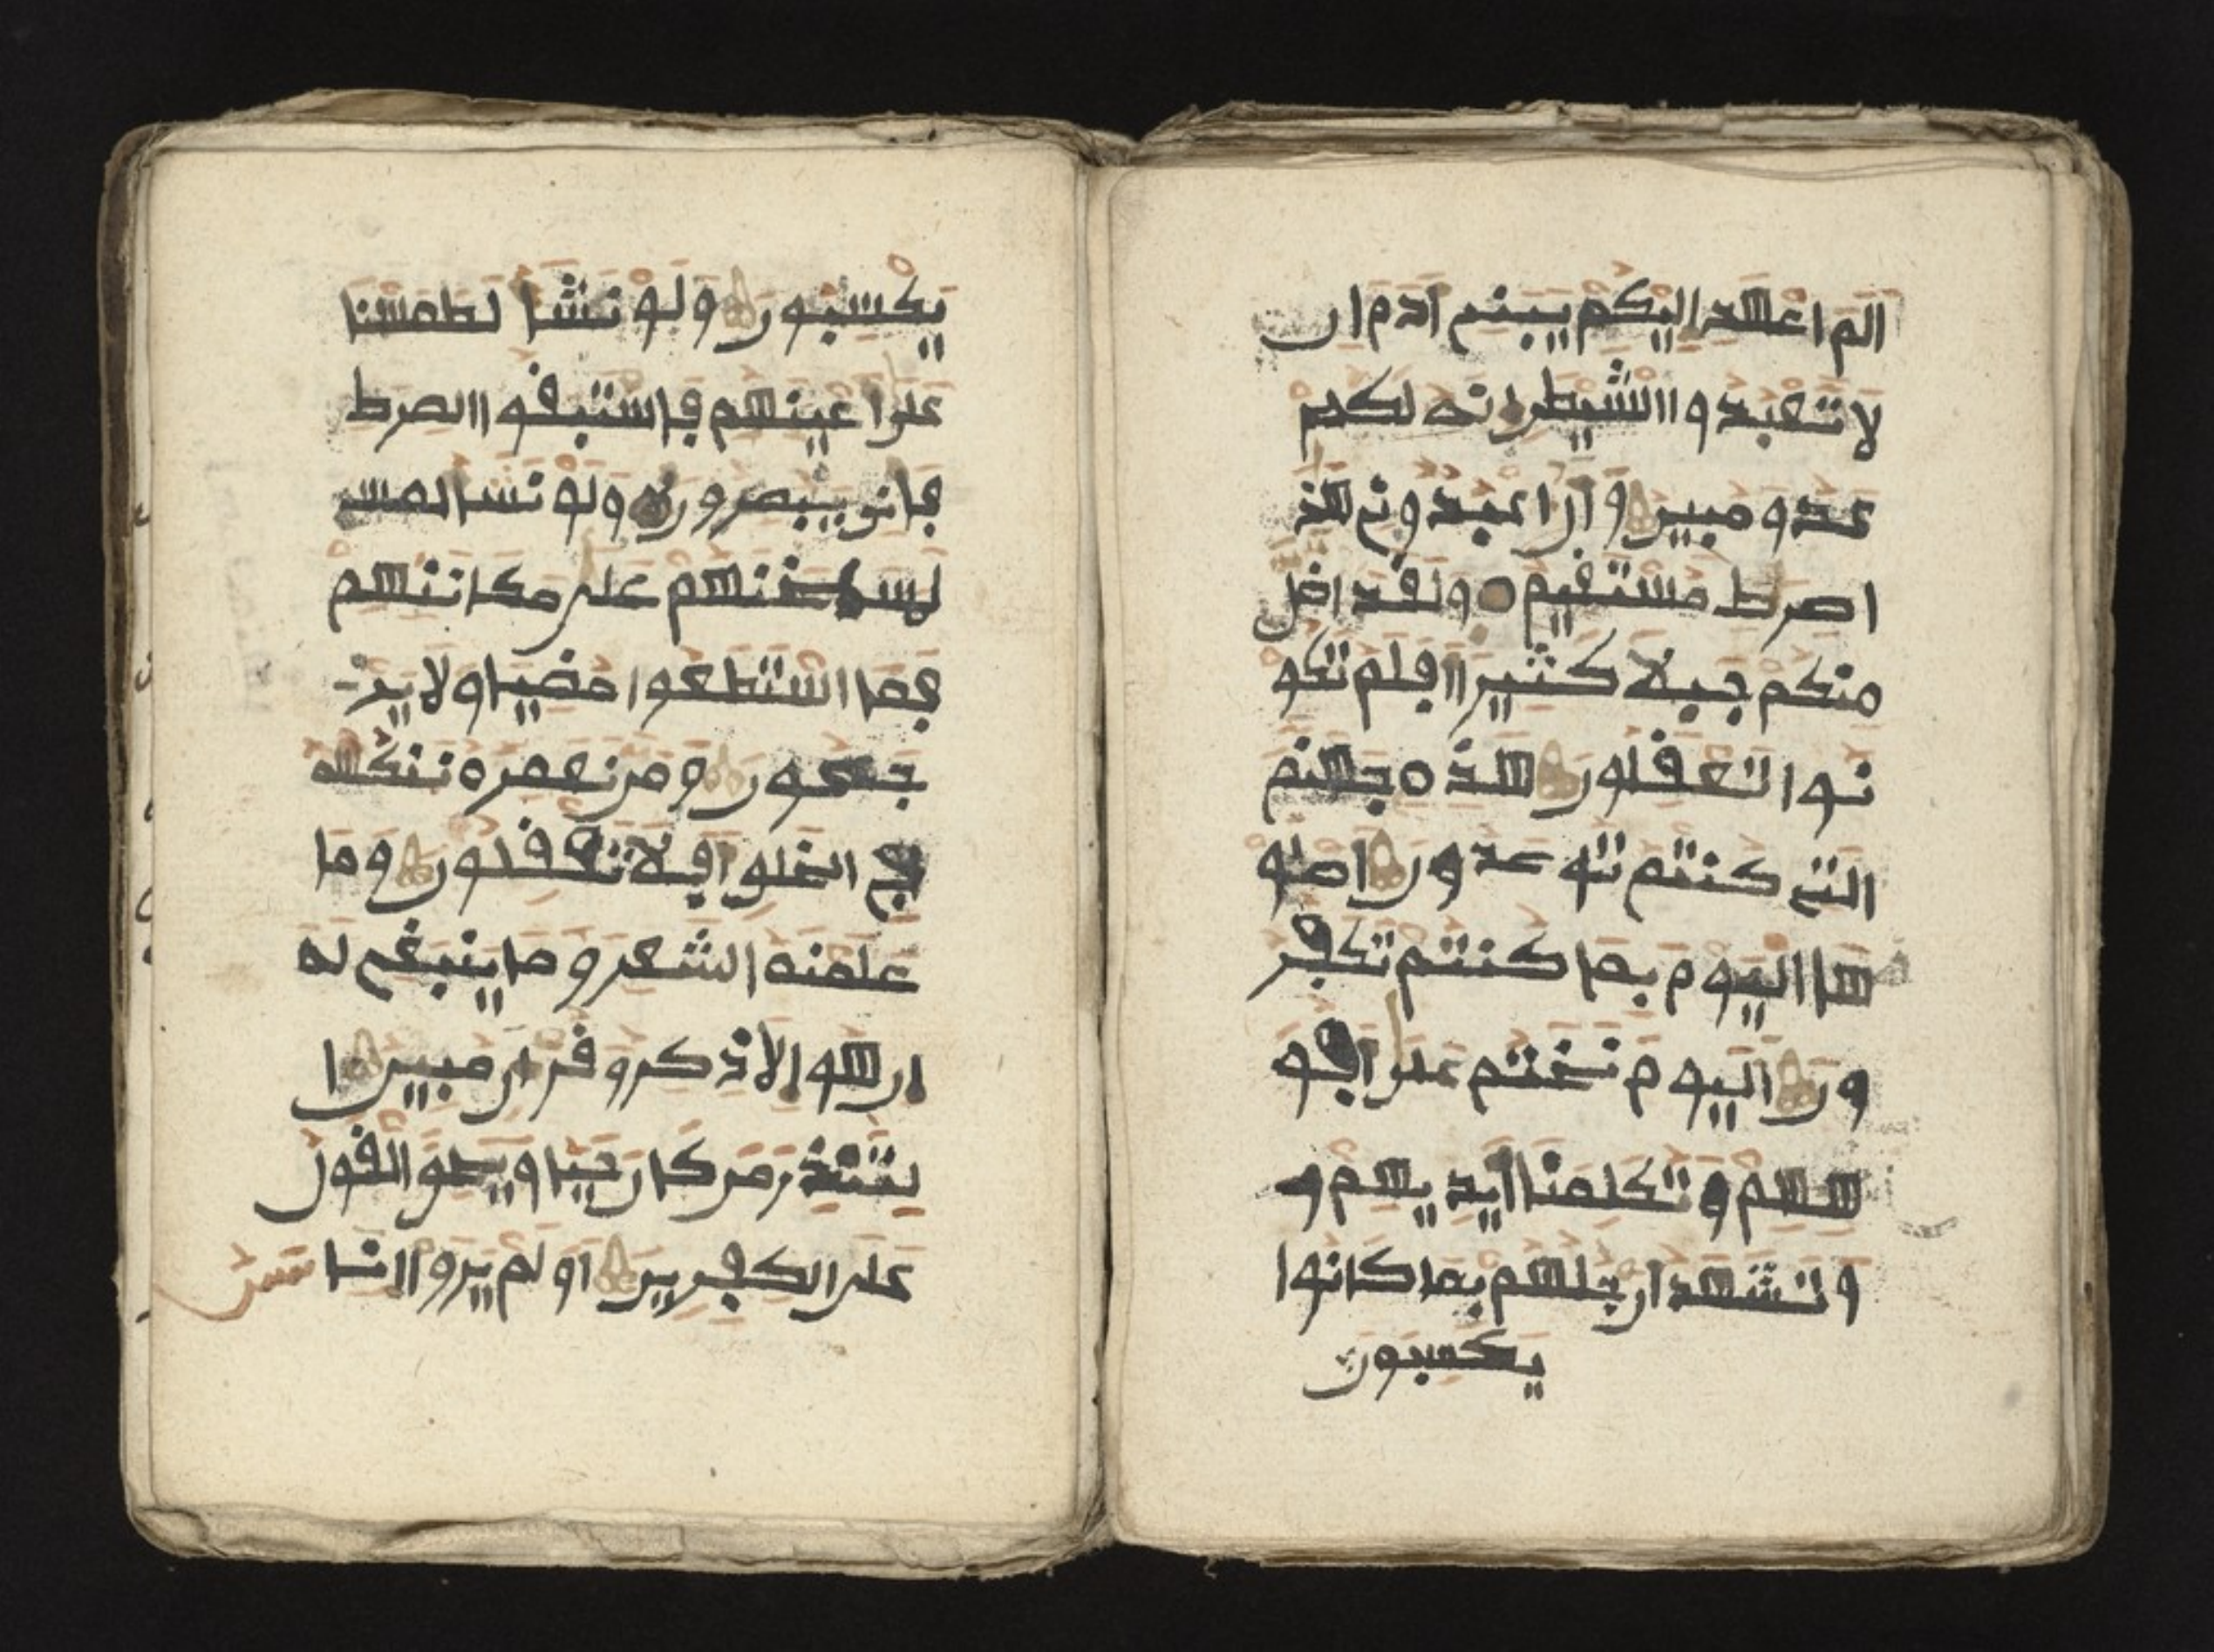 الم اعهد اليكم يبنے ادم ان
لا تعبدوا الشيطن انه لكم
عدو مبين وان اعبدونے هذ
اصرط مستقيم ولقد اضل
منكم جبلا كثيرا اڢلم تكو
نوا تعڧلون هذه جهنم
التے كنتم توعدون اصلو
ها اليوم بما كنتم تكڢر
ون اليوم نختم على اڢو
ههم وتكلمنا ايديهم و
وتشهد ارجلهم بما كانوا
يكسبون
يكسبون ولو نشا لطمسنا
على اعينهم ڢاستبڧوا الصرط
ڢانى يبصرون ولو نشا لمس
لمسخنهم على مكانتهم
ڢما استطعوا مضيا ولا ير
جعون ومن نعمره ننكسه
ڢے الخلو اڢلا تعڧلون وما
علمنه الشعر وما ينبغے له
ان هو الا ذكر وڧران مبين ا
لتنذر من كان حيا ويحو الڧول
على الكڢرين اولم يروا انا